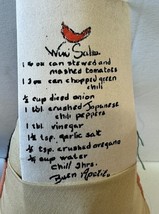 Wow Salsa
1 6 oz can stewed and
mashed tomatoes
1 3 oz can chopped green
chili
½ cup diced onion
1 tbl crushed Japanese
chili peppers
1 tbl vinegar
½ tsp. garlic salt
¼ tsp. crushed oregano
½ cup water
Chill 3 hrs.
Buen